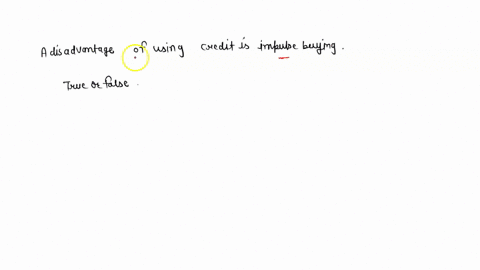 A disadvantage of using credit is impulse buying.
True or false.